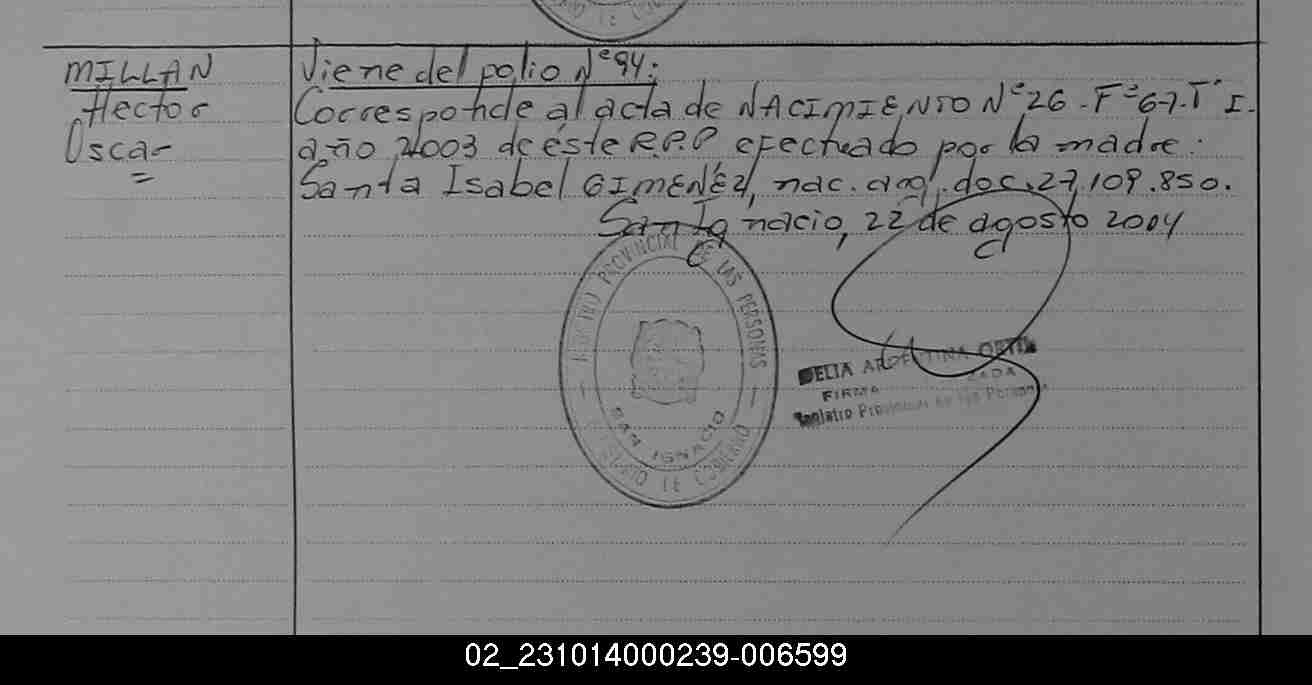 MILLAN
Hector
Oscar
Viene del polio Nº 94:
Corresponde al acta de NACIMIENTO Nº 26. Fº 67. Tº I.
año 2003 de éste R.P.P efectuado por la madre:
Santa Isabel GIMENEZ, nac. arg. doc. 27.109.850.
San Ignacio, 22 de agosto 2004
REGISTRO PROVINCIAL DE LAS PERSONAS
SAN IGNACIO
DE GOBIERNO
DELIA ARGENTINA ORTIZ
FIRMA
Registro Provincial de las Personas
02_231014000239-006599